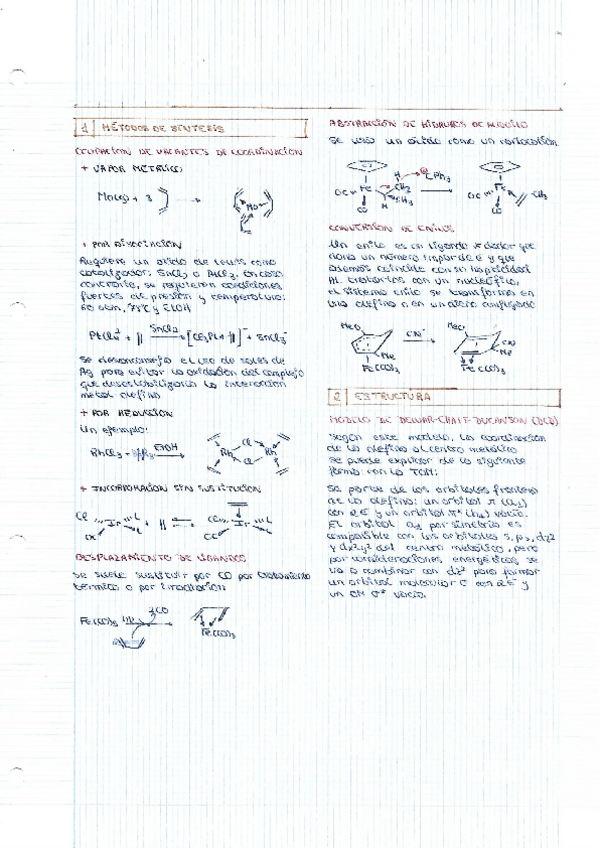 1 MÉTODOS DE SÍNTESIS
OCUPACIÓN DE VACANTES DE COORDINACIÓN
+ VAPOR METÁLICO:
Mo(g) + 3
Mo
+ POR
Requiere un ácido de Lewis como
catalizador: SnCl2 o AlCl3. En caso
contrario, se requieren condiciones
fuertes de presión y temperatura:
60 atm, y EtOH
PtCl4 2- + SnCl2 [Cl3Pt ]- + SnCl3-
Se desaconseja el uso de sales de
Ag para evitar la oxidación del complejo
que desestabilizaría la interacción
metal olefina
+ POR REDUCCIÓN
Un ejemplo:
RhCl3 + EtOH Rh Cl Cl Rh
+ INCORPORACIÓN SIN SUSTITUCIÓN
Cl Ir L L OC + Ir L L
DESPLAZAMIENTO DE LIGANDOS
Se suele sustituir por CO por tratamiento
térmico o por irradiación
Fe(CO)5 CO Fe(CO)3
ABSTRACCIÓN DE HIDRUROS DE ALQUILO
Se usa un ácido como un carbocatión
H CPh3
OC Fe CH2 CO H CH3 OC Fe CO CH3
CONVERSIÓN DE ENILOS
Un enilo es un ligando dador que
dona un número impar de e y que
además coincide con su hapticidad
Al tratarlos con un nucleófilo,
el sistema enilo se transforma en
una olefina o en un dieno conjugado
MeO Me Fe(CO)3 CN- MeO CN Me Fe(CO)3
2 ESTRUCTURA
MODELO DE DEWAR-CHATT-DUNCANSON (DCD)
Según este modelo, la coordinación
de la olefina al centro metálico
se puede explicar de la siguiente
forma con la TOM:
Se parte de los orbitales frontera
de la olefina: un orbital π (a1)
con 2e- y un orbital π* (b2) vacío.
El orbital a1 por simetría es
compatible con los orbitales s, pz, dz2
y dx2-y2 del centro metálico, pero
por consideraciones energéticas se
va a combinar con dz2 para formar
un orbital molecular σ con 2e- y
un OM σ* vacío.